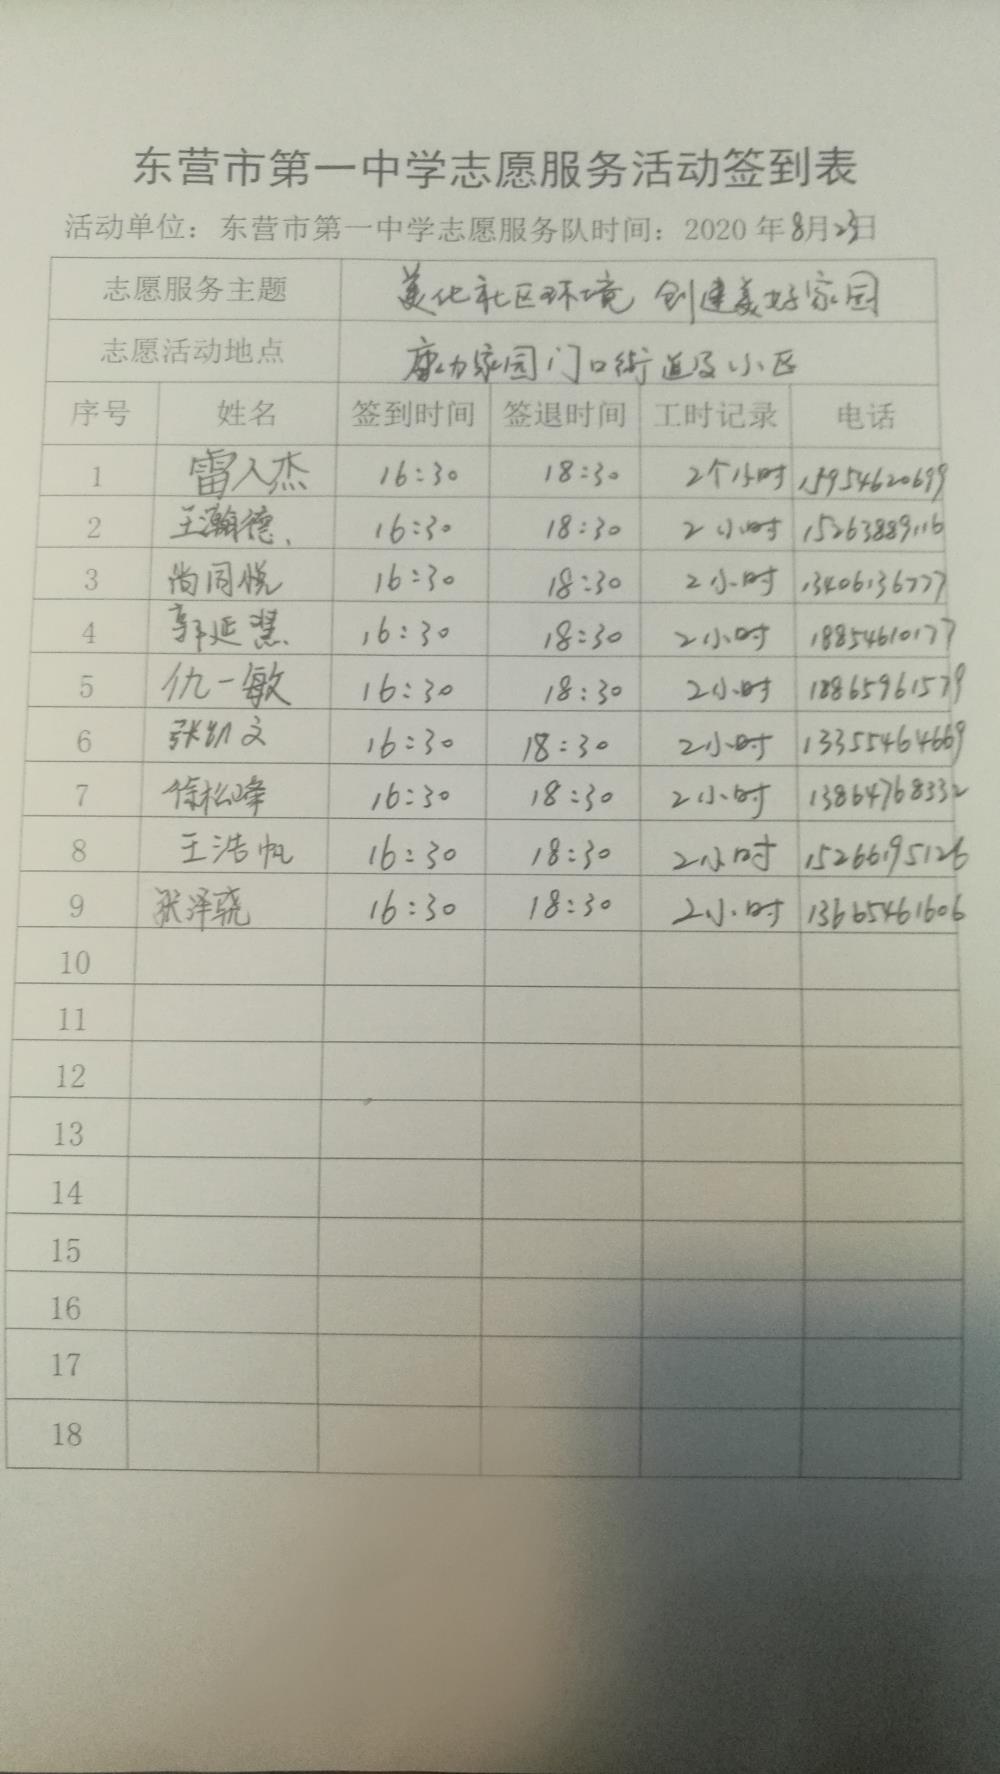 东营市第一中学志愿服务活动签到表
活动单位：东营市第一中学志愿服务队时间：2020 年8月23日
志愿服务主题 美化社区环境 创建美好家园
志愿活动地点 康力家园门口街道及小区
序号 姓名 签到时间 签退时间 工时记录 电话
1 雷入杰 16:30 18:30 2个小时 15954620699
2 王瀚德 16:30 18:30 2小时 15263889116
3 尚同悦 16:30 18:30 2小时 13406136777
4 郭延慧 16:30 18:30 2小时 18854610177
5 仇一敏 16:30 18:30 2小时 18865961579
6 张凯文 16:30 18:30 2小时 13355464669
7 徐松峰 16:30 18:30 2小时 13864768332
8 王浩帆 16:30 18:30 2小时 15266195126
9 张泽骁 16:30 18:30 2小时 13665461606
10
11
12
13
14
15
16
17
18